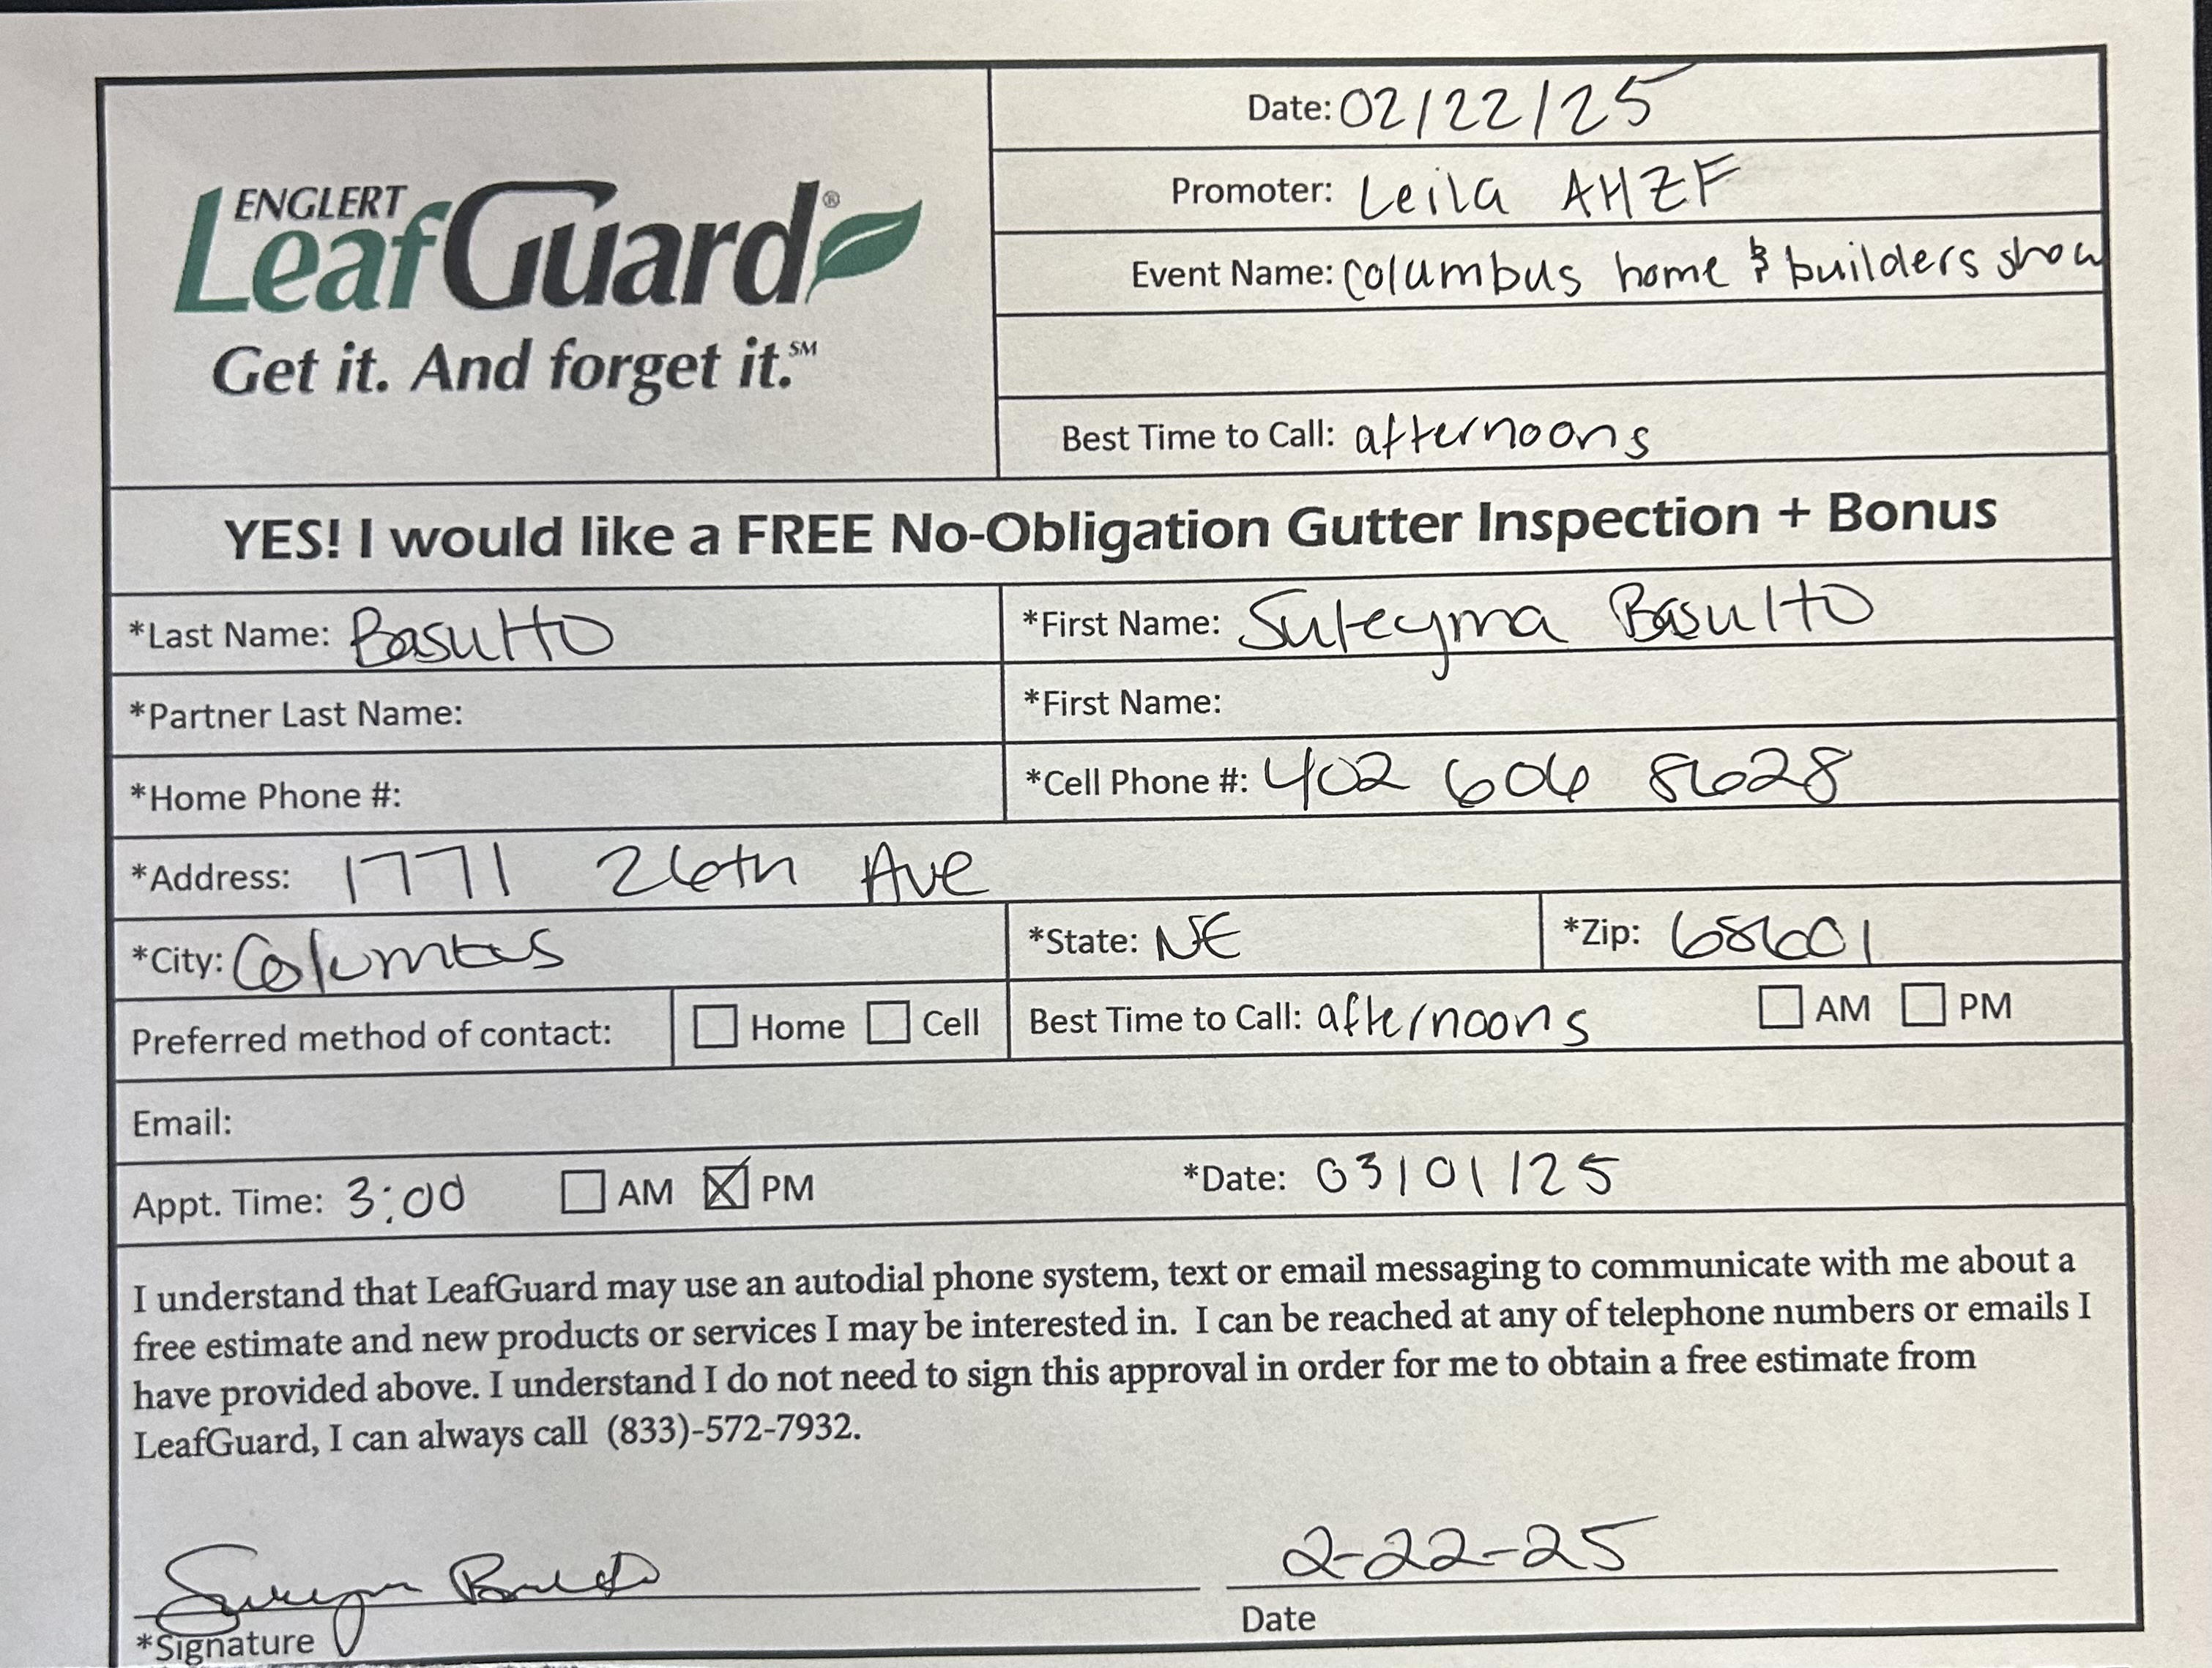 Date: 02/22/25
Promoter: Leila AHZF
ENGLERT
LeafGuard®
Event Name: columbus home & builders show
Get it. And forget it.℠
Best Time to Call: afternoons
YES! I would like a FREE No-Obligation Gutter Inspection + Bonus
*Last Name: Basulto *First Name: Suleyma Basulto
*Partner Last Name: *First Name:
*Home Phone #: *Cell Phone #: 402 606 8628
*Address: 1771 26th Ave
*City: Columbus *State: NE *Zip: 68601
Preferred method of contact: ☐ Home ☐ Cell Best Time to Call: afternoons ☐ AM ☐ PM
Email:
Appt. Time: 3:00 ☐ AM ☒ PM *Date: 03/01/25
I understand that LeafGuard may use an autodial phone system, text or email messaging to communicate with me about a
free estimate and new products or services I may be interested in. I can be reached at any of telephone numbers or emails I
have provided above. I understand I do not need to sign this approval in order for me to obtain a free estimate from
LeafGuard, I can always call (833)-572-7932.
Suleyma Basulto 2-22-25
*Signature Date